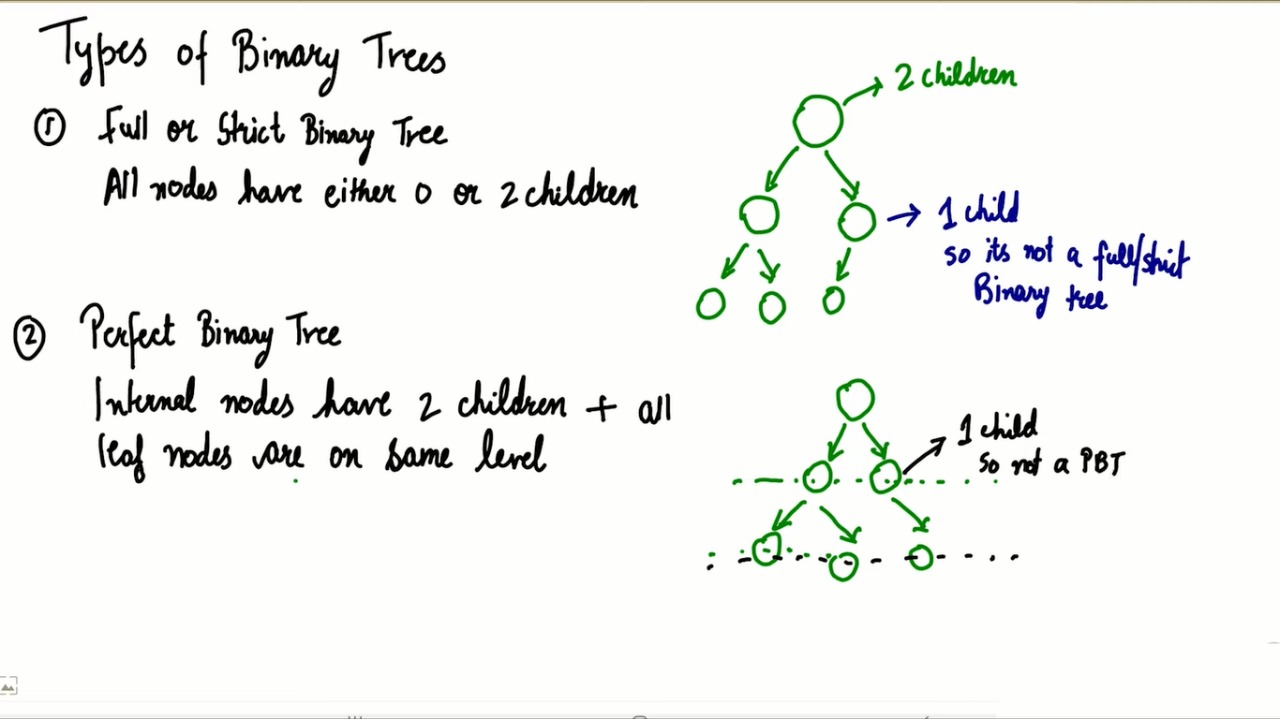 Types of Binary Trees
① Full or Strict Binary Tree
All nodes have either 0 or 2 children
2 children
1 child
so its not a full/strict
Binary tree
② Perfect Binary Tree
Internal nodes have 2 children + all
leaf nodes are on same level
1 child
so not a PBT